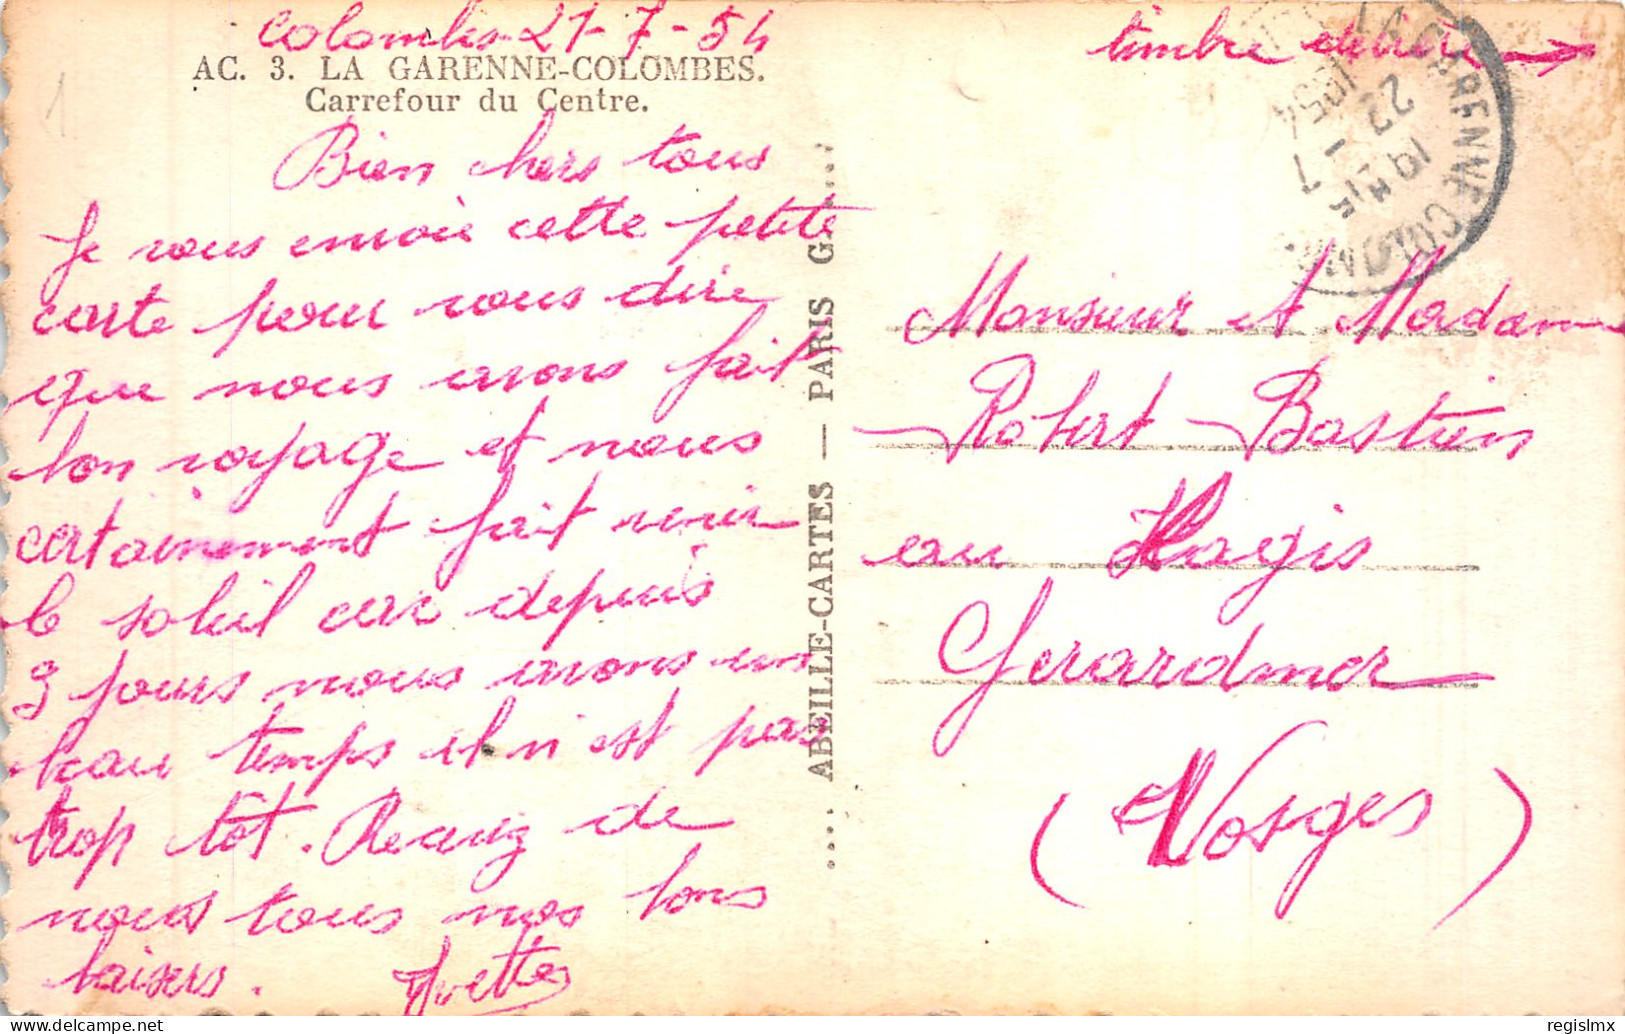 Colombes 21-7-54
AC. 3. LA GARENNE-COLOMBES.
Carrefour du Centre.
Bien chers tous
Je vous envoie cette petite
carte pour vous dire
que nous avons fait
bon voyage et nous
certainement fait venir
le soleil car depuis
3 jours nous avons un
beau temps il n'est pas
trop tôt. Recevez de
nous tous nos bons
baisers. Yvette
.... ABEILLE-CARTES — PARIS
timbre derrière →
LA GARENNE COLOMBES
19 H 15
22 - 7
1954
Monsieur et Madame
Robert Bastien
au Kagis
Gerardmer
(Vosges)
1
delcampe.net
regislmx